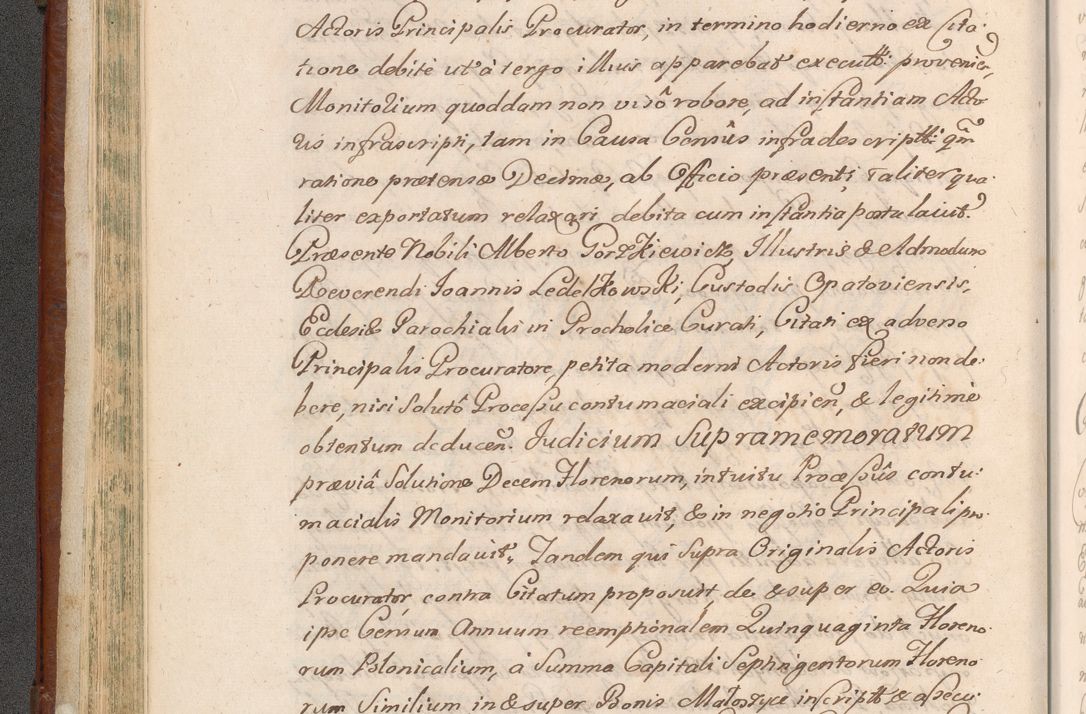 Actoris Principalis Procurator, in termino hodierno ex Cita
tione debite ut à tergo illius apparebat executt: provenien,
Monitorium quoddam non visô robore, ad instantiam Acto
ris infrascripti, tam in Causa Censûs infradescriptt: qm̃
ratione prætensæ Decimæ, ab Officio præsenti, taliter qua
liter exportatum relaxari, debita cum instantia postulavit.
Præsente Nobili Alberto Gorzkiewicz, Illustris & Admodum
Reverendi Joannis Ledelkowski, Custodis Opatoviensis,
Ecclesiæ Parochialis in Procholice Curati, Citati ex adverso
Principalis Procuratore, petita moderni Actoris fieri non de:
bere, nisi Solutô Processu contumaciali excipien̄, & legitimè
obtentum deducen̄. Judicium Supramemoratum
præviâ Solutione Decem Florenorum, intuitu Processûs contu:
macialis Monitorium relaxavit, & in negotio Principali pro
ponere mandavit. Tandem qui Supra Originalis Actoris
Procurator, contra Citatum proposuit de & super eo. Quia
ipse Censum Annuum reemptionalem Quinquaginta Floreno
rum Polonicalium, à Summa Capitali Septingentorum Floreno
rum Similium in & super Bonis Małoszyce inscriptt: & assecu: